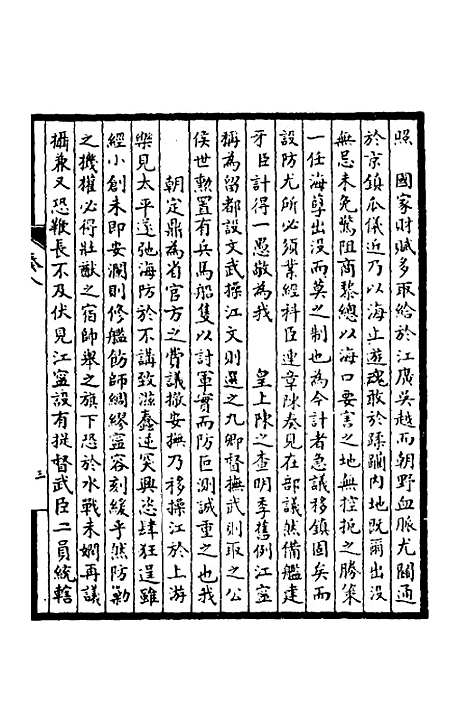 照　國家財賦多取給於江廣吳越而朝野血脈尤關通
於京鎮瓜儀近乃以海上遊魂敢於蹂躪內地既爾出沒
無忌未免驚阻商黎總以海口要害之地無控扼之勝策
一任海孽出沒而莫之制也為今計者急議移鎮固矣而
設防尤所必須業經科臣連章陳奏見在部議然備艦建
牙臣計得一愚敬為我　　皇上陳之查明季舊例江寧
稱為留都設文武操江文則選之九卿督撫武則取之公
侯世勳置有兵馬船隻以討軍實而防叵測誠重之也我
　朝定鼎為省官方之費議撤安撫乃移操江於上游
樂見太平遂弛海防於不講致滋蠢逆突興恣肆狂逞雖
經小創未即安瀾則修艦飭師綢繆寧容刻緩乎然防剿
之機權必得壯猷之宿師舉之旗下恐於水戰未嫻再議
攝兼又恐鞭長不及伏見江寧設有提督武臣二員統轄
卷八
三